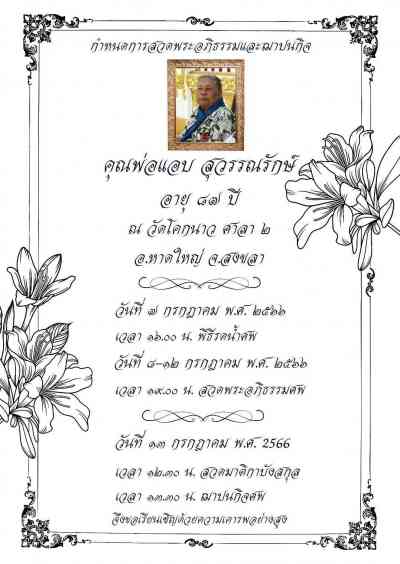 กำหนดการสวดพระอภิธรรมและฌาปนกิจ
คุณพ่อแอบ สุวรรณรักษ์
อายุ ๘๗ ปี
ณ วัดโคกนาว ศาลา ๒
อ.หาดใหญ่ จ.สงขลา
วันที่ ๗ กรกฎาคม พ.ศ. ๒๕๖๖
เวลา ๑๖.๐๐ น. พิธีรดน้ำศพ
วันที่ ๘-๑๒ กรกฎาคม พ.ศ. ๒๕๖๖
เวลา ๑๙.๐๐ น. สวดพระอภิธรรมศพ
วันที่ ๑๓ กรกฎาคม พ.ศ. 2566
เวลา ๑๒.๓๐ น. สวดมาติกาบังสกุล
เวลา ๑๓.๓๐ น. ฌาปนกิจศพ
จึงขอเรียนเชิญด้วยความเคารพอย่างสูง